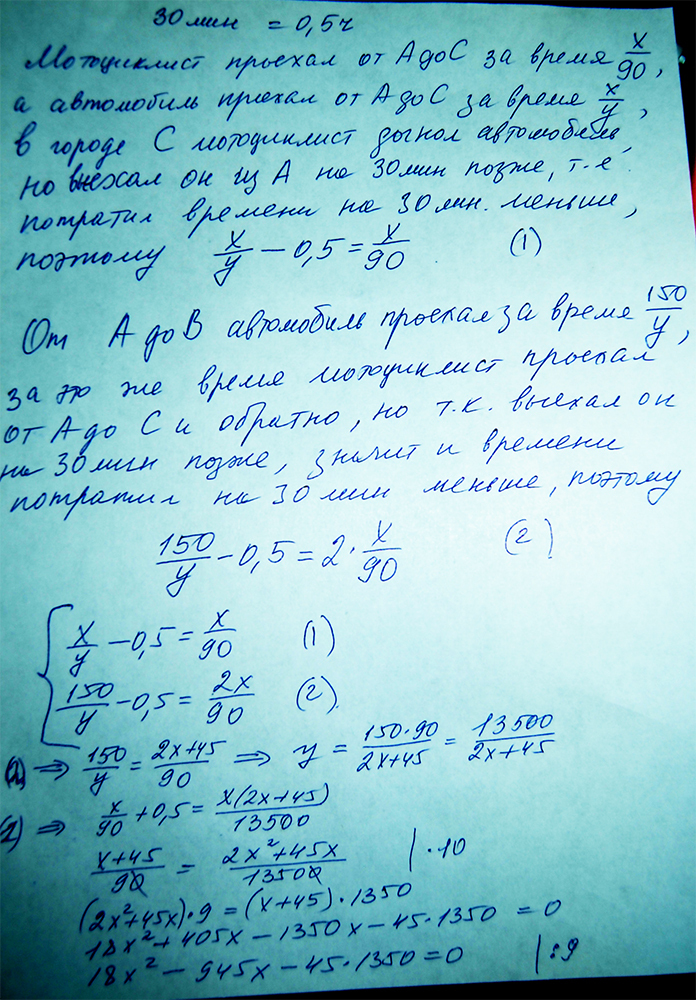 30 мин = 0,5ч
Мотоциклист проехал от А до С за время x/90,
а автомобиль приехал от А до С за время x/y,
в городе С мотоциклист догнал автомобиль,
но выехал он из А на 30 мин позже, т.е.
потратил времени на 30 мин. меньше,
поэтому x/y − 0,5 = x/90 (1)
От А до В автомобиль проехал за время 150/y,
за это же время мотоциклист проехал
от А до С и обратно, но т.к. выехал он
на 30 мин позже, значит и времени
потратил на 30 мин меньше, поэтому
150/y − 0,5 = 2 · x/90 (2)
{ x/y − 0,5 = x/90 (1)
150/y − 0,5 = 2x/90 (2)
(2) ⇒ 150/y = 2x+45/90 ⇒ y = 150·90/2x+45 = 13500/2x+45
⇒ x/90 + 0,5 = x(2x+45)/13500
x+45/90 = 2x²+45x/13500 | ·10
(2x²+45x)·9 = (x+45)·1350
18x² + 405x − 1350x − 45·1350 = 0
18x² − 945x − 45·1350 = 0 | :9